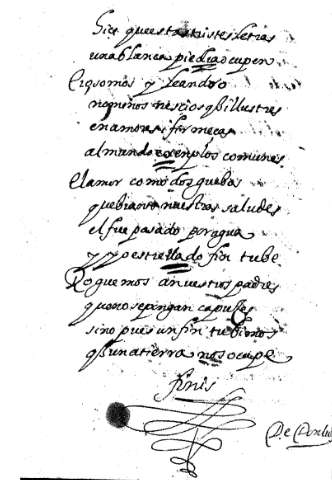 Diçe que estas tristes letras
una blanca piedra ocupen
Ero somos y Leandro
no menos necios q illustres
en amores y firmeças
al mundo exenplos comunes
el amor como dos guebos
quebranto nuestras saludes
el fue pasado por agua
y yo estrellado fin tube
Roguemos a nuestros padres
que no se pongan capuçes
sino pues un fin tubimos
q una tierra nos ocupe
finis
De Don Lu